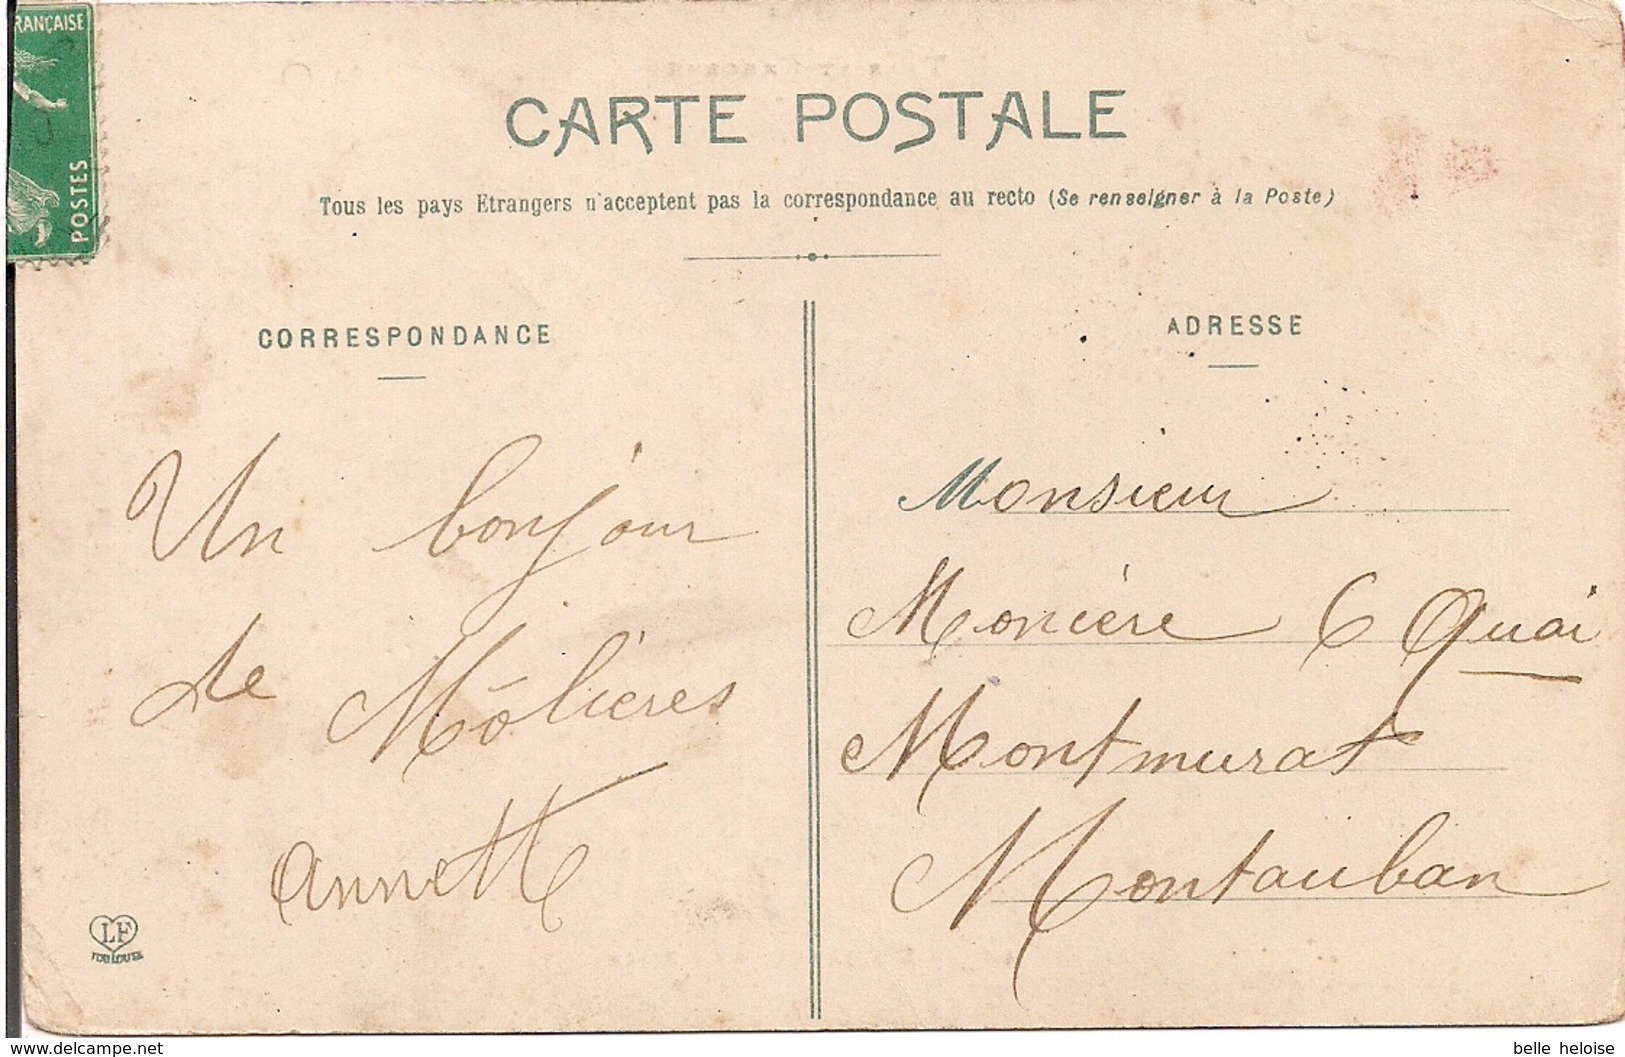 RANÇAISE
POSTES
CARTE POSTALE
Tous les pays Etrangers n'acceptent pas la correspondance au recto (Se renseigner à la Poste)
CORRESPONDANCE
Un bonjour
de Môlières
Annette
LF
TOULOUSE
ADRESSE
Monsieur
Monière 6 Quai
Montmurat
Montauban
www.delcampe.net
belle heloise